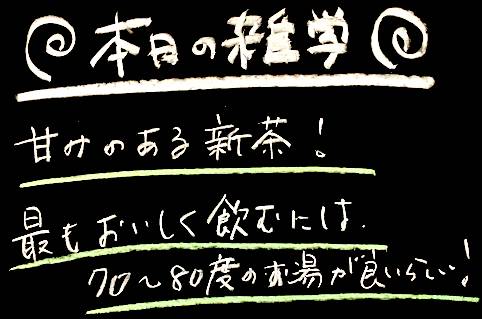 本日の雑学
甘みのある新茶!
最もおいしく飲むには
70~80度のお湯が良いらしい!